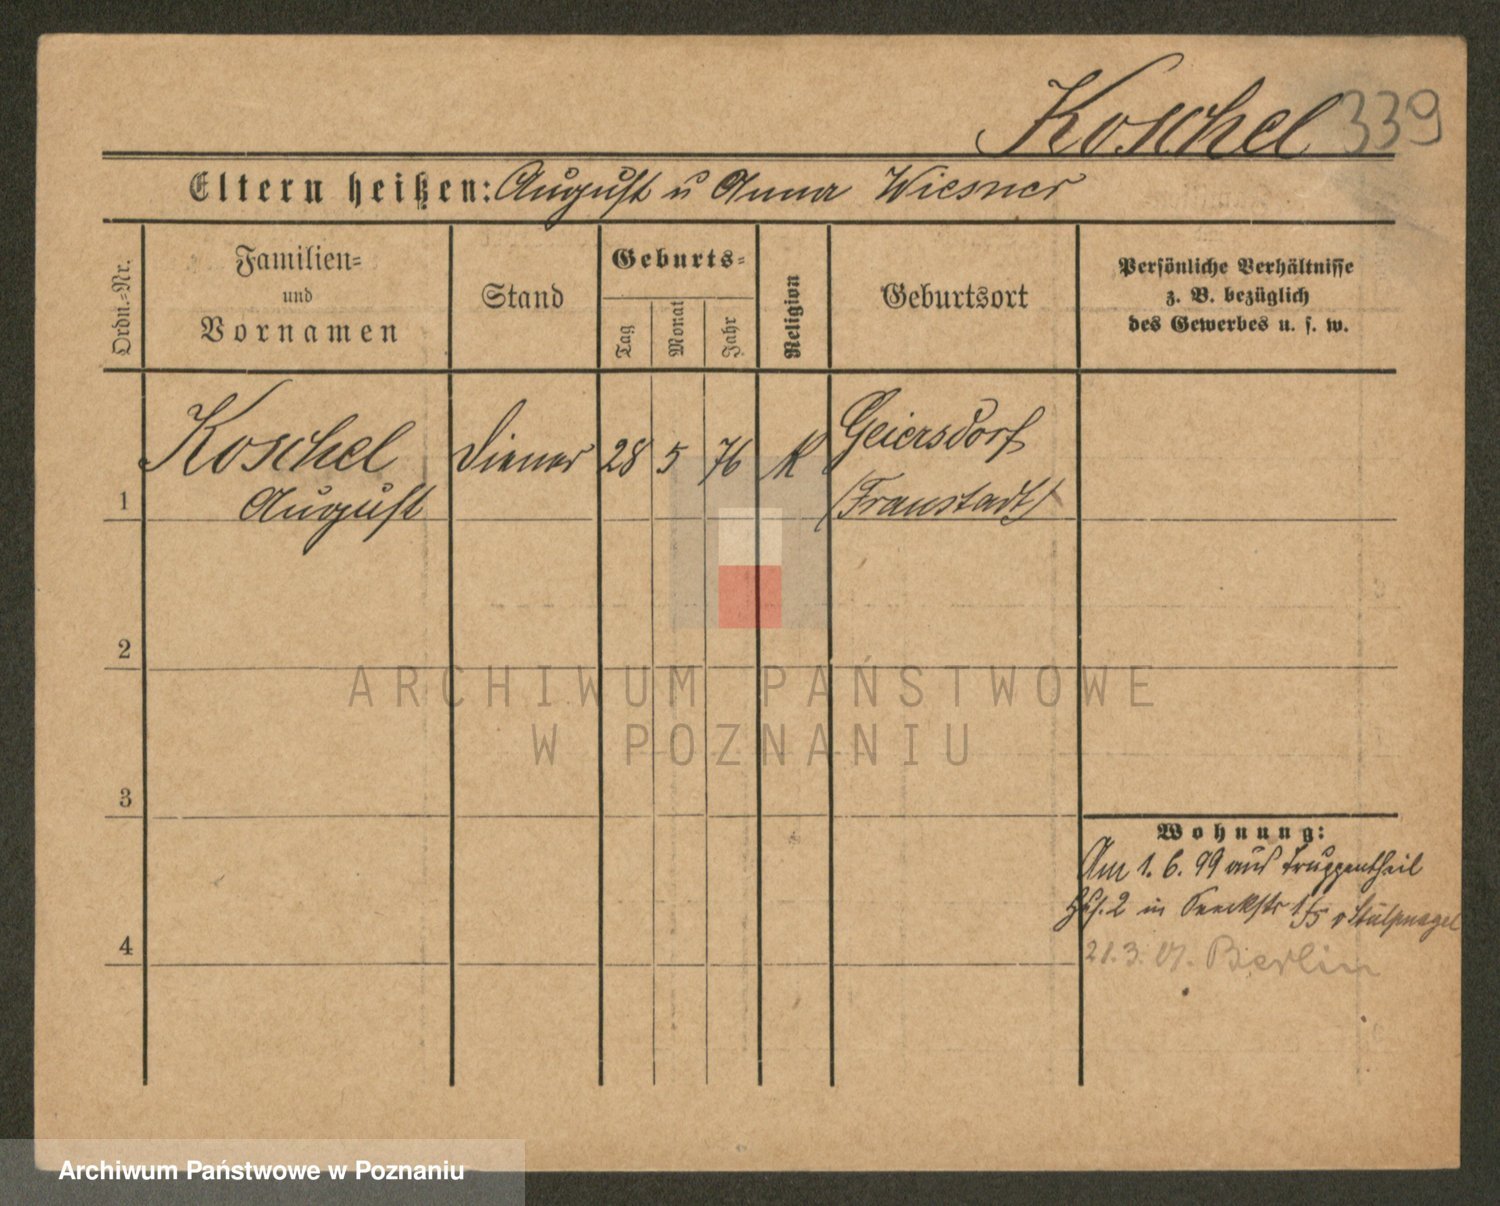 Koschel 339
Eltern heißen: August u Anna Wiesner
Ordn.=Nr.
Familien=
und
Vornamen
Stand
Geburts=
Tag
Monat
Jahr
Religion
Geburtsort
Persönliche Verhältnisse
z. B. bezüglich
des Gewerbes u. s. w.
Koschel Diener 28 5 76 K Geiersdorf
1 August (Fraustadt)
2
ARCHIWUM PAŃSTWOWE
W POZNANIU
3
Wohnung:
Am 1. 6. 99 aus Truppentheil
Hus. 2 in Seeckstr 1/5 v Stülpnagel
4
21. 3. 07. Berlin
Archiwum Państwowe w Poznaniu